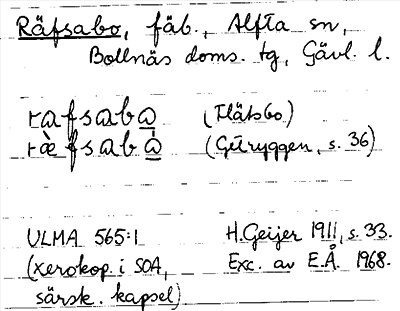 Räfsabo, fäb., Alfta sn,
Bollnäs doms. tg, Gävl. l.
rafsaba (Flätsbo)
ræ̀fsabà (Getryggen, s. 36)
ULMA 565:1 H. Geijer 1911, s. 33.
(xerokop. i SOA, Exc. av E.Å. 1968.
särsk. kapsel)